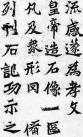 流感遂為孝文
皇帝造石像一區
凡及衆形罔備
列刊石記功示之